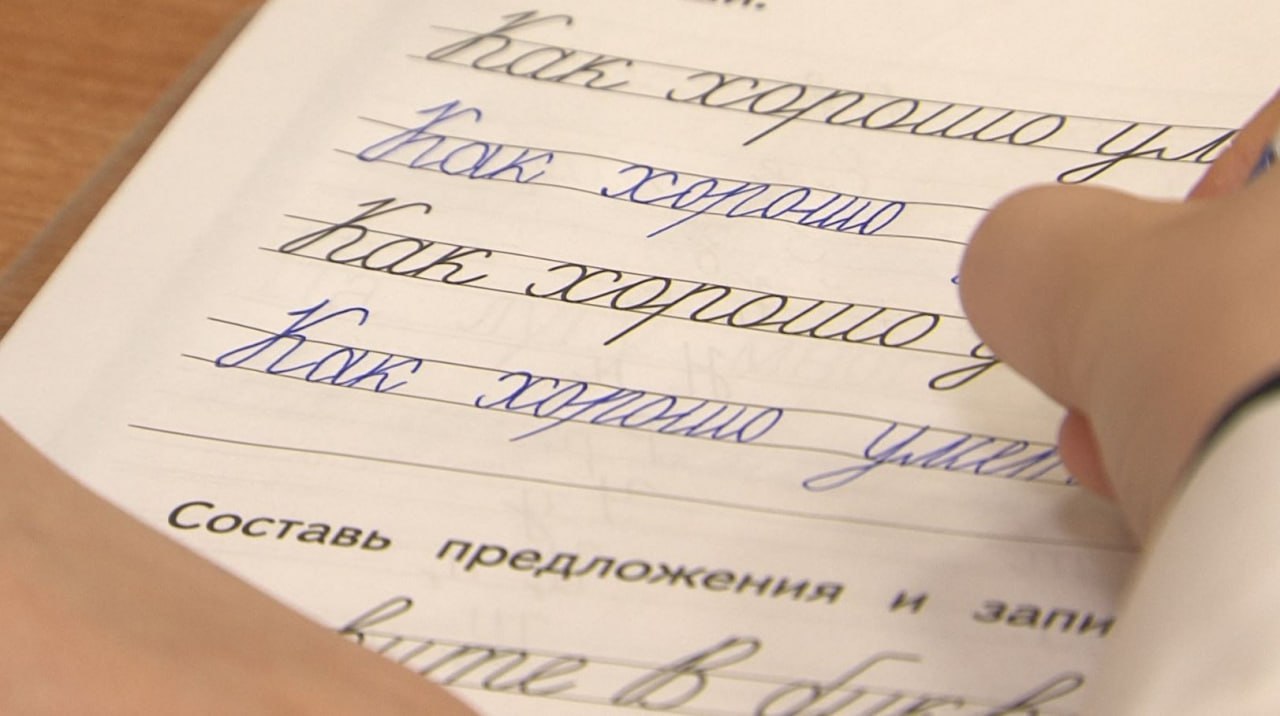 Как хорошо ум
Как хорошо
Как хорошо у
Как хорошо умет
Составь предложения и запи
вите В букв